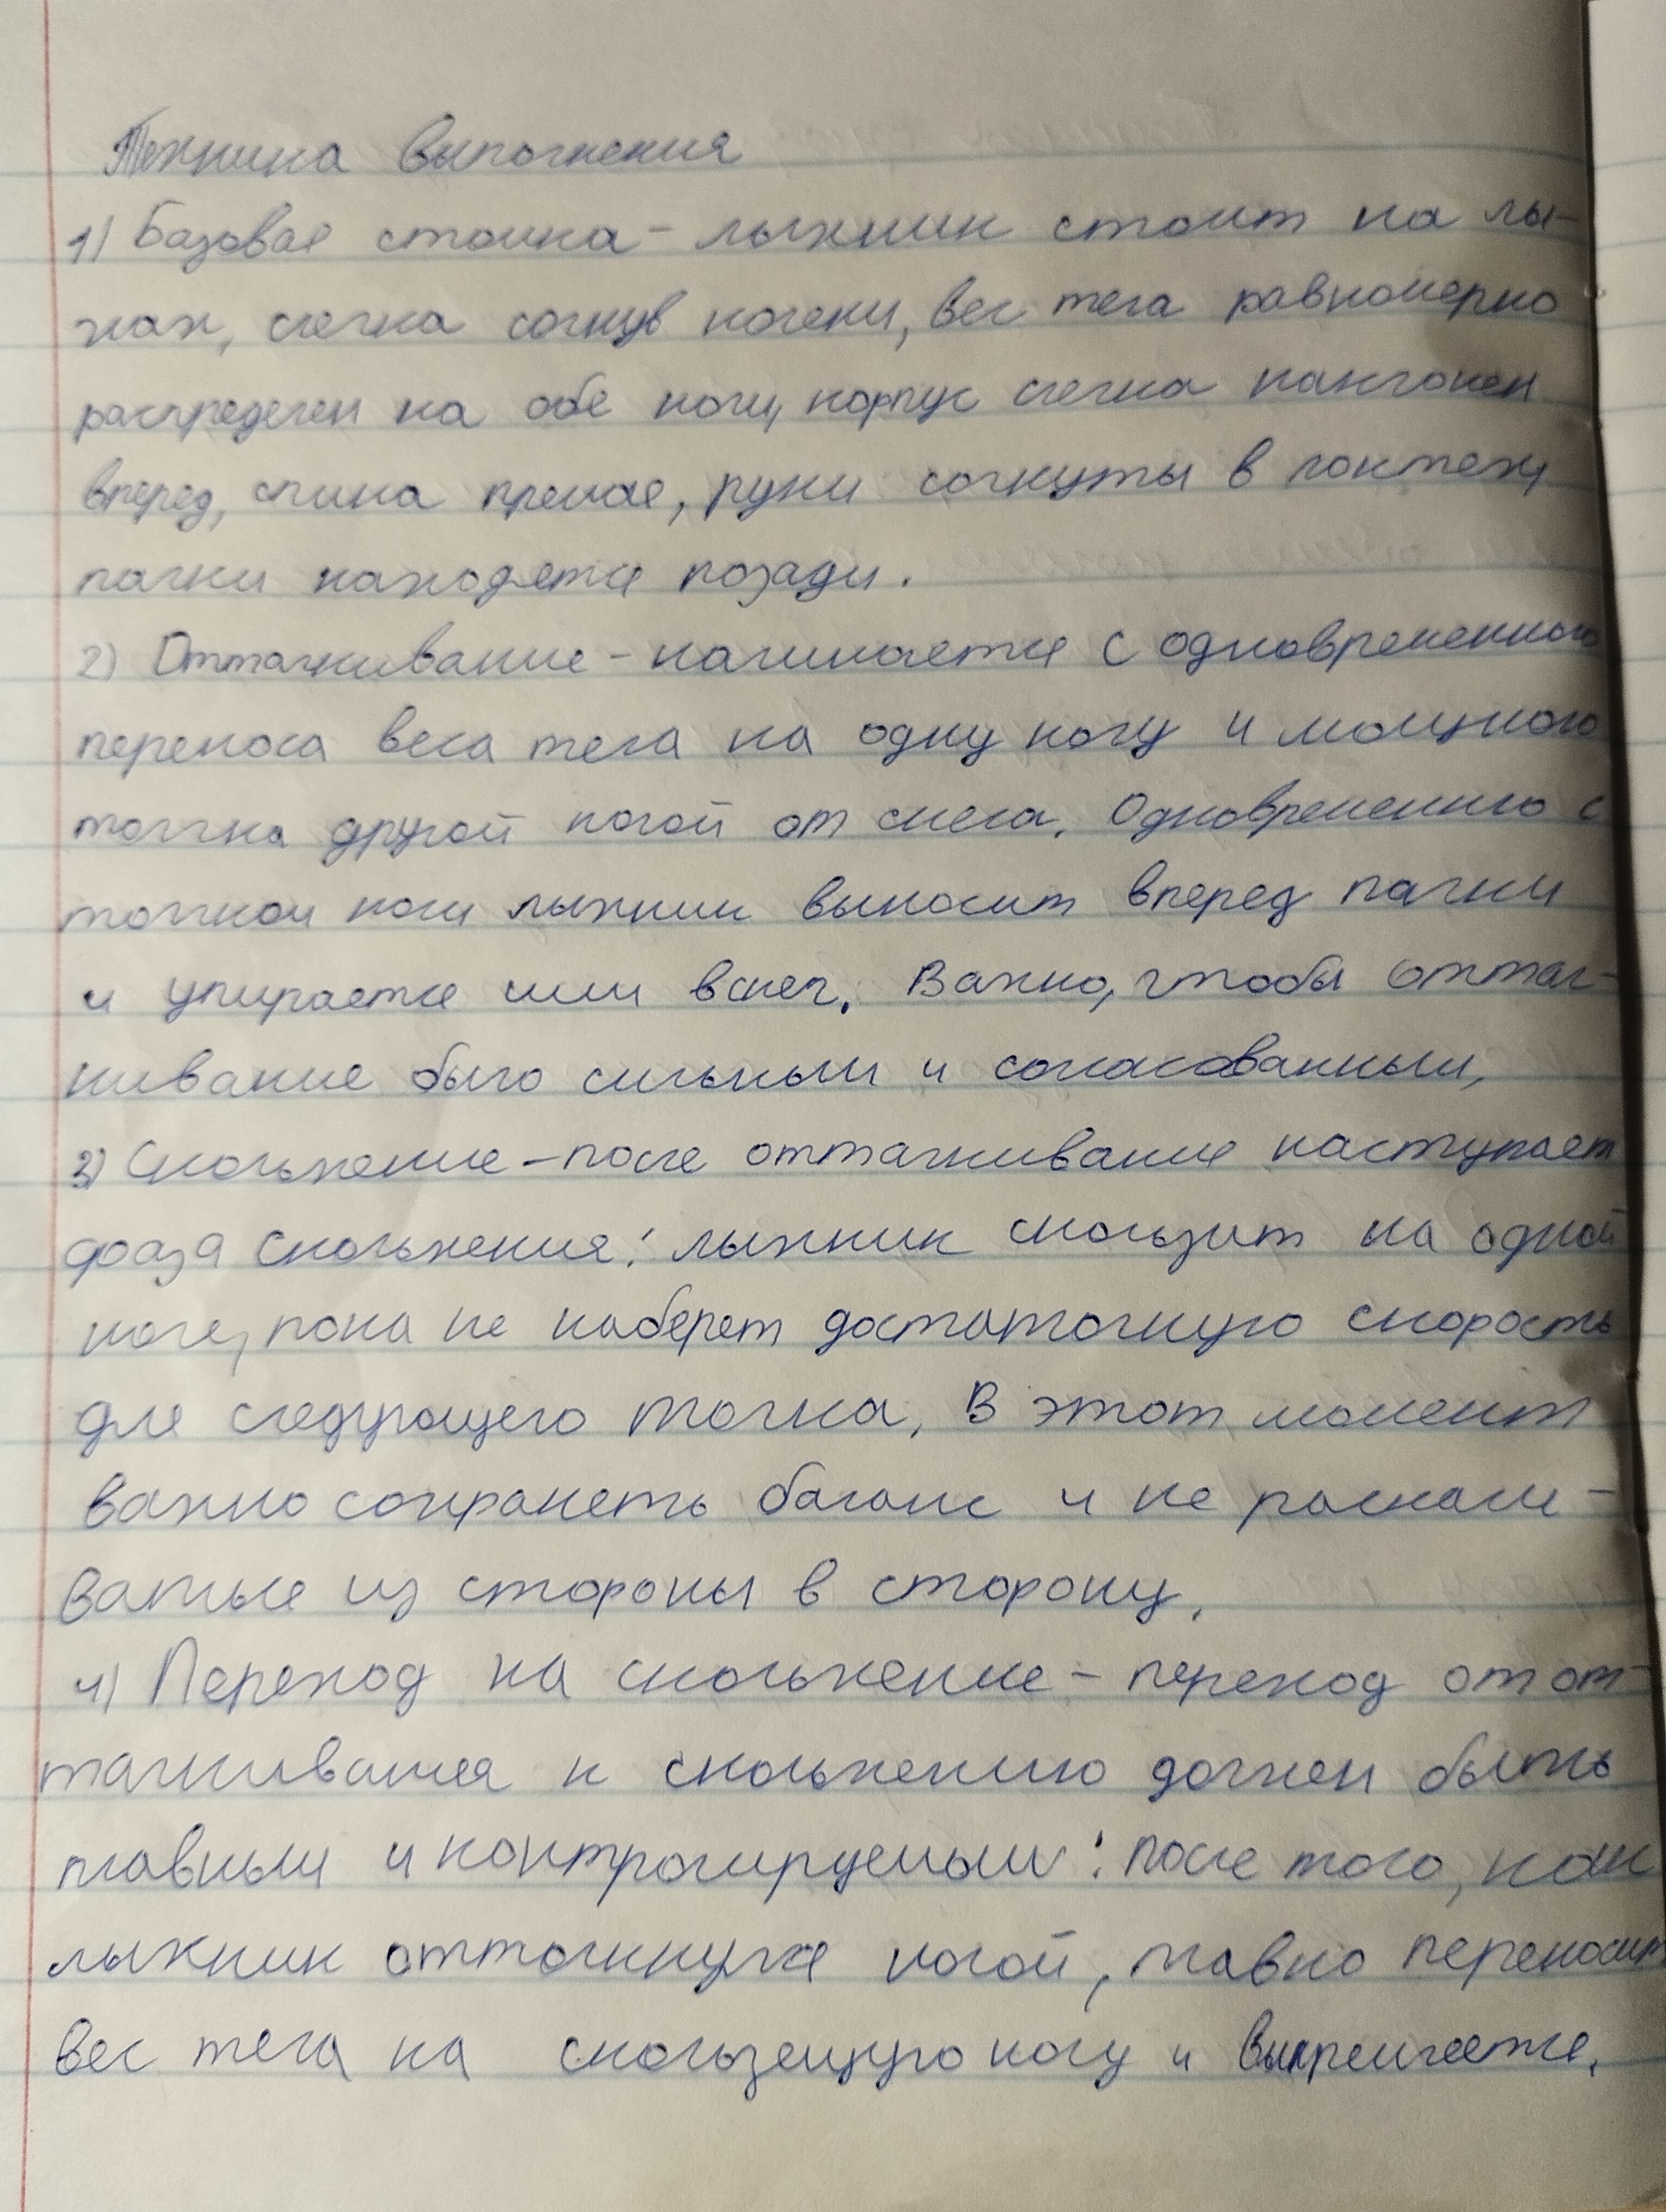 Техника выполнения
1) Базовая стойка - лыжник стоит на лы-
жах, слегка согнув колени, вес тела равномерно
распределен на обе ноги, корпус слегка наклонен
вперед, спина прямая, руки согнуты в локтях,
палки находятся позади.
2) Отталкивание - начинается с одновременного
переноса веса тела на одну ногу и мощного
толчка другой ногой от снега. Одновременно с
толчком ноги лыжник выносит вперед палки
и упирается ими в снег. Важно, чтобы оттал-
кивание было сильным и согласованным,
3) Скольжение - после отталкивания наступает
фаза скольжения: лыжник скользит на одной
ноге, пока не наберет достаточную скорость
для следующего толчка. В этот момент
важно сохранять баланс и не раскачи-
ваться из стороны в сторону.
4) Переход на скольжение - переход от от-
талкивания к скольжению должен быть
плавным и контролируемым: после того, как
лыжник оттолкнулся ногой, плавно переносит
вес тела на скользящую ногу и выпрямляется.